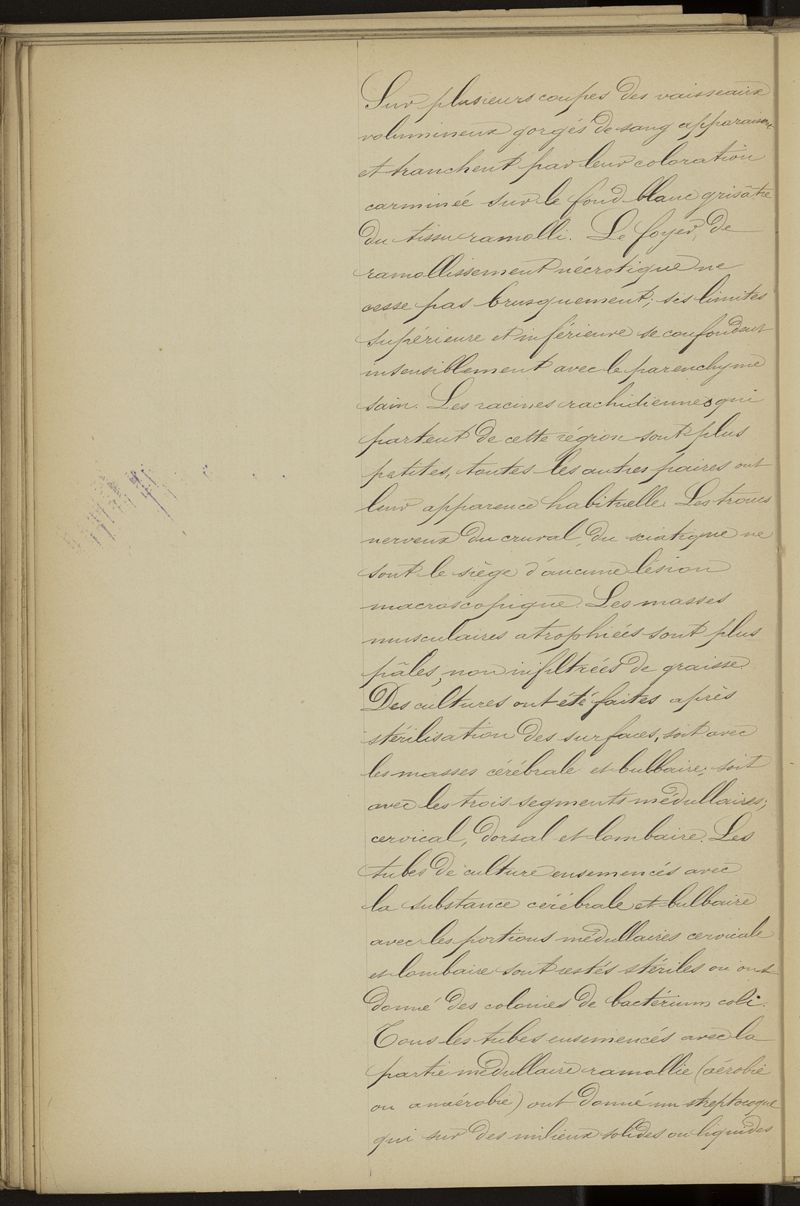 Sur plusieurs coupes des vaisseaux
volumineux gorgés de sang apparaissent
et tranchent par leur coloration
carminée sur le fond blanc grisâtre
du tissu ramolli. Le foyer, de
ramollissement nécrotique ne
cesse pas brusquement; ses limites
supérieure et inférieure se confondent
insensiblement avec le parenchyme
sain. Les racines rachidiennes qui
partent de cette région sont plus
petites, toutes les autres paires ont
leur apparence habituelle. Les troncs
nerveux du crural, du sciatique ne
sont le siège d'aucune lésion
macroscopique. Les masses
musculaires atrophiées sont plus
pâles, non infiltrées de graisse.
Des cultures ont été faites après
stérilisation des surfaces, soit avec
les masses cérébrale et bulbaire; soit
avec les trois segments médullaires;
cervical, dorsal et lombaire. Les
tubes de culture ensemencés avec
la substance cérébrale et bulbaire
avec les portions médullaires cervicale
et lombaire sont restés stériles ou ont
donné des colonies de bactérium coli.
Tous les tubes ensemencés avec la
partie médullaire ramollie (aérobie
ou anaérobie) ont donné un streptocoque
qui sur des milieux solides ou liquides